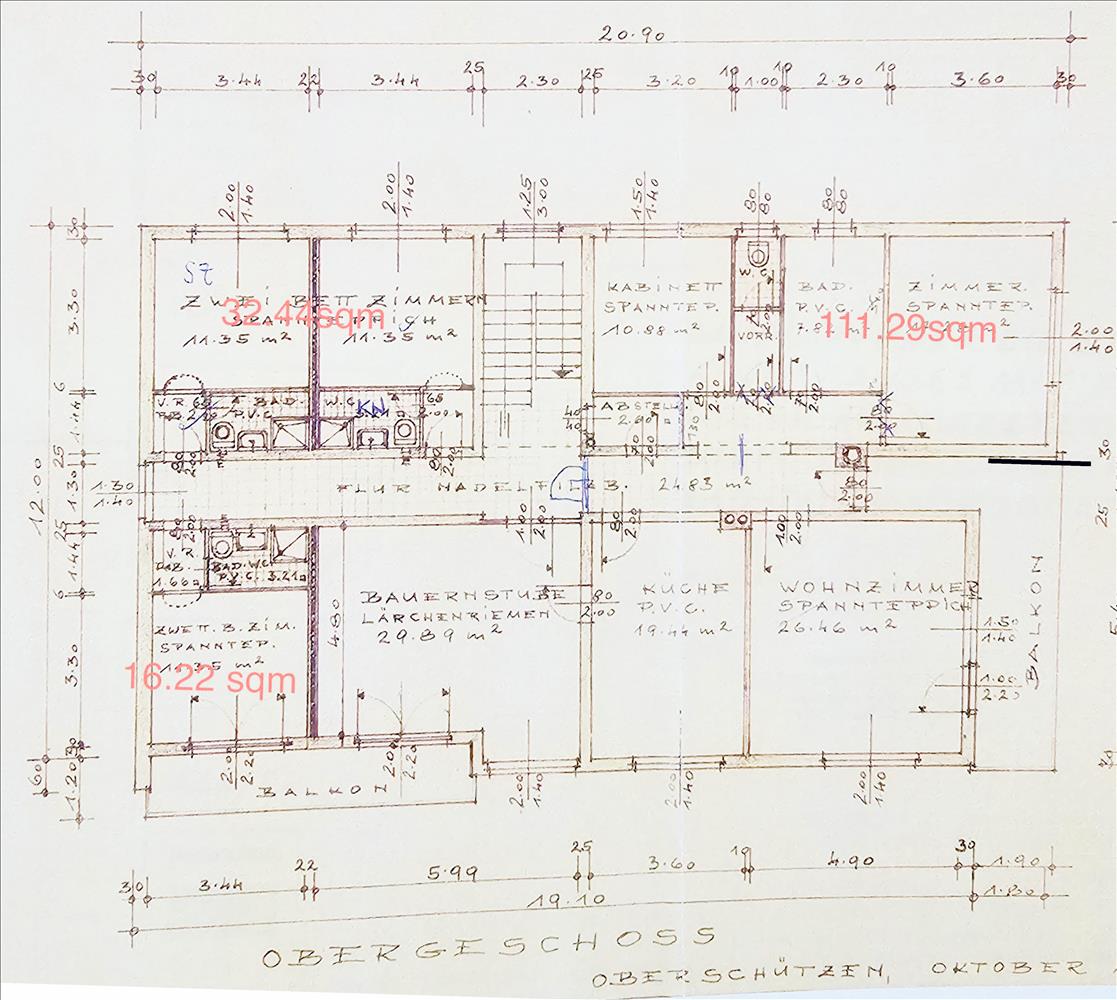 20.90
30 3.44 22 3.44 25 2.30 25 3.20 10 1.00 10 2.30 10 3.60 30
2.00
1.40
2.00
1.40
1.25
3.00
1.50
1.40
80
80
80
80
SZ
ZWEI BETT ZIMMERN
11.35 m² 11.35 m²
32.44sqm
KABINETT
SPANNTEP.
10.88 m²
W.C.
VORR.
BAD.
P.V.C.
ZIMMER.
SPANNTEP.
111.29sqm
2.00
1.40
V.R.
BAD. W.C.
P.V.C.
ABSTELL.
12.00
30
3.30
6
1.44
25
1.30
25
1.44
6
3.30
30
1.20
60
1.30
1.40
FLUR NADELFILZB. 24.83 m²
80
2.00
30
25
V.R.
1.66
BAD. W.C.
P.V.C. 3.21
1.00
2.00
80
2.00
1.00
2.00
ZWETT.B.ZIM.
SPANNTEP.
11.35 m²
16.22 sqm
4.80
BAUERNSTUBE
LÄRCHENRIEMEN
29.89 m²
80
2.00
KÜCHE
P.V.C.
19.44 m²
WOHNZIMMER
SPANNTEPPICH
26.46 m²
1.50
1.40
1.00
2.20
BALKON
2.00
2.20
2.00
2.20
BALKON
2.00
1.40
2.00
1.40
2.00
1.40
30 3.44 22 5.99 25 3.60 10 4.90 30 1.90
19.10 1.80
OBERGESCHOSS
OBERSCHÜTZEN, OKTOBER